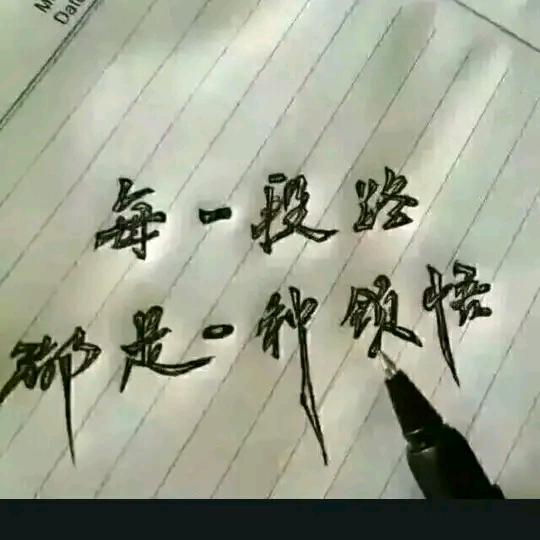 M
Dat
每一段路
都是一种领悟